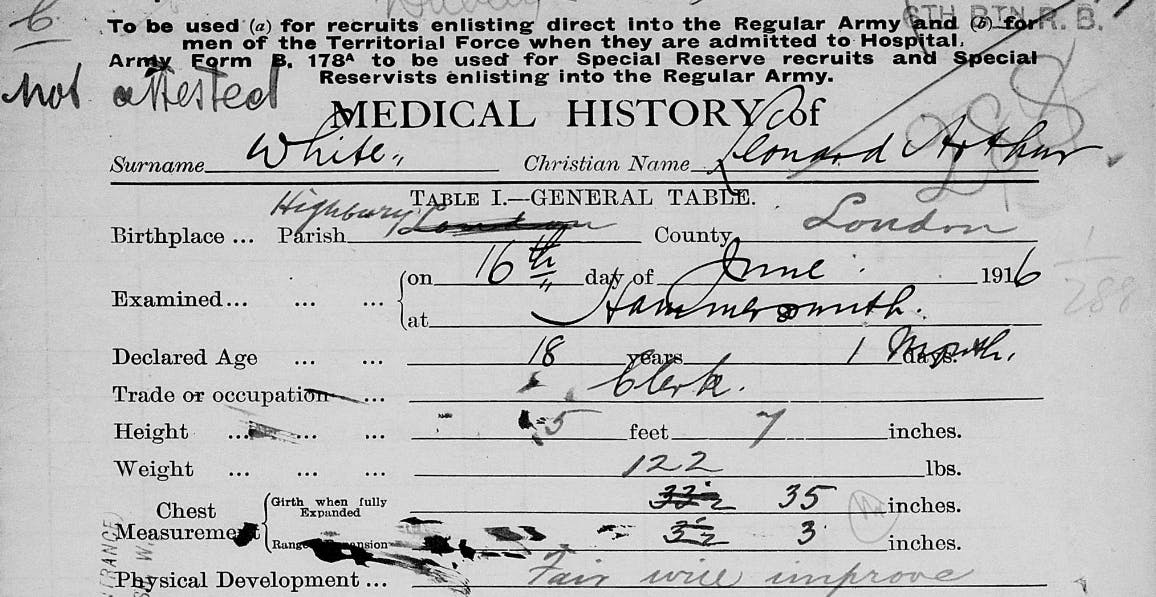 6TH BTN. R. B.
To be used (a) for recruits enlisting direct into the Regular Army and (b) for
men of the Territorial Force when they are admitted to Hospital.
Army Form B. 178A to be used for Special Reserve recruits and Special
Reservists enlisting into the Regular Army.
not attested
MEDICAL HISTORY of
Surname White Christian Name Leonard Arthur.
TABLE I.—GENERAL TABLE.
Birthplace ... Parish Highbury London County London
Examined... ... ... on 16th day of June 1916
at Hammersmith.
Declared Age ... ... 18 years 1 Month. days.
Trade or occupation ... Clerk.
Height ... ... ... 5 feet 7 inches.
Weight ... ... ... 122 lbs.
Chest Measurement
Girth when fully Expanded 33½ 35 inches.
Range Expansion 3½ 3 inches.
Physical Development ... Fair will improve